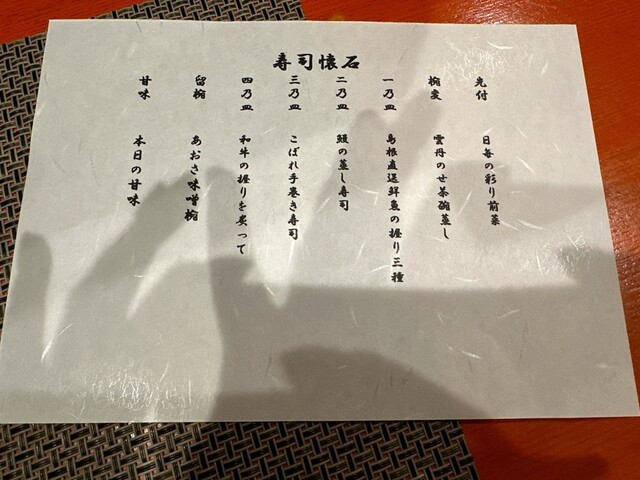 寿司懐石
先付 日毎の彩り前菜
椀変 雲丹のせ茶碗蒸し
一乃皿 島根直送鮮魚の握り三種
二乃皿 鰻の蒸し寿司
三乃皿 こぼれ手巻き寿司
四乃皿 和牛の握りを炙って
留椀 あおさ味噌椀
甘味 本日の甘味